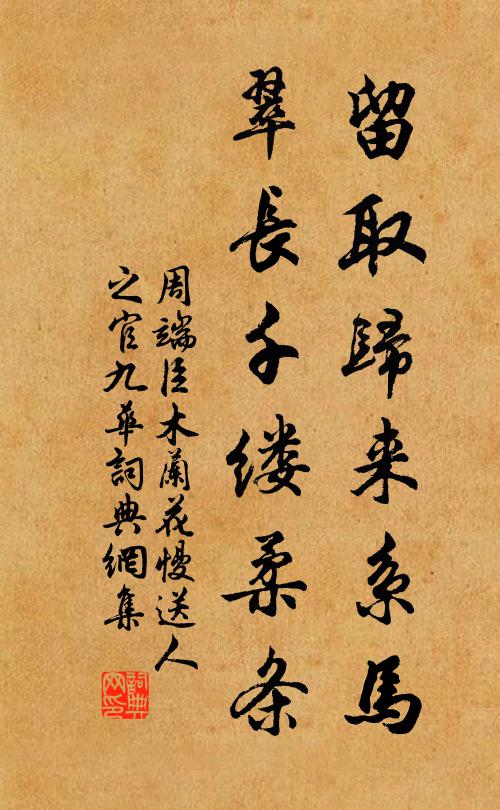 留取歸来系馬
翠長千缕柔条
周端臣木蘭花慢送人
之官九華詞典網集
詞典网印